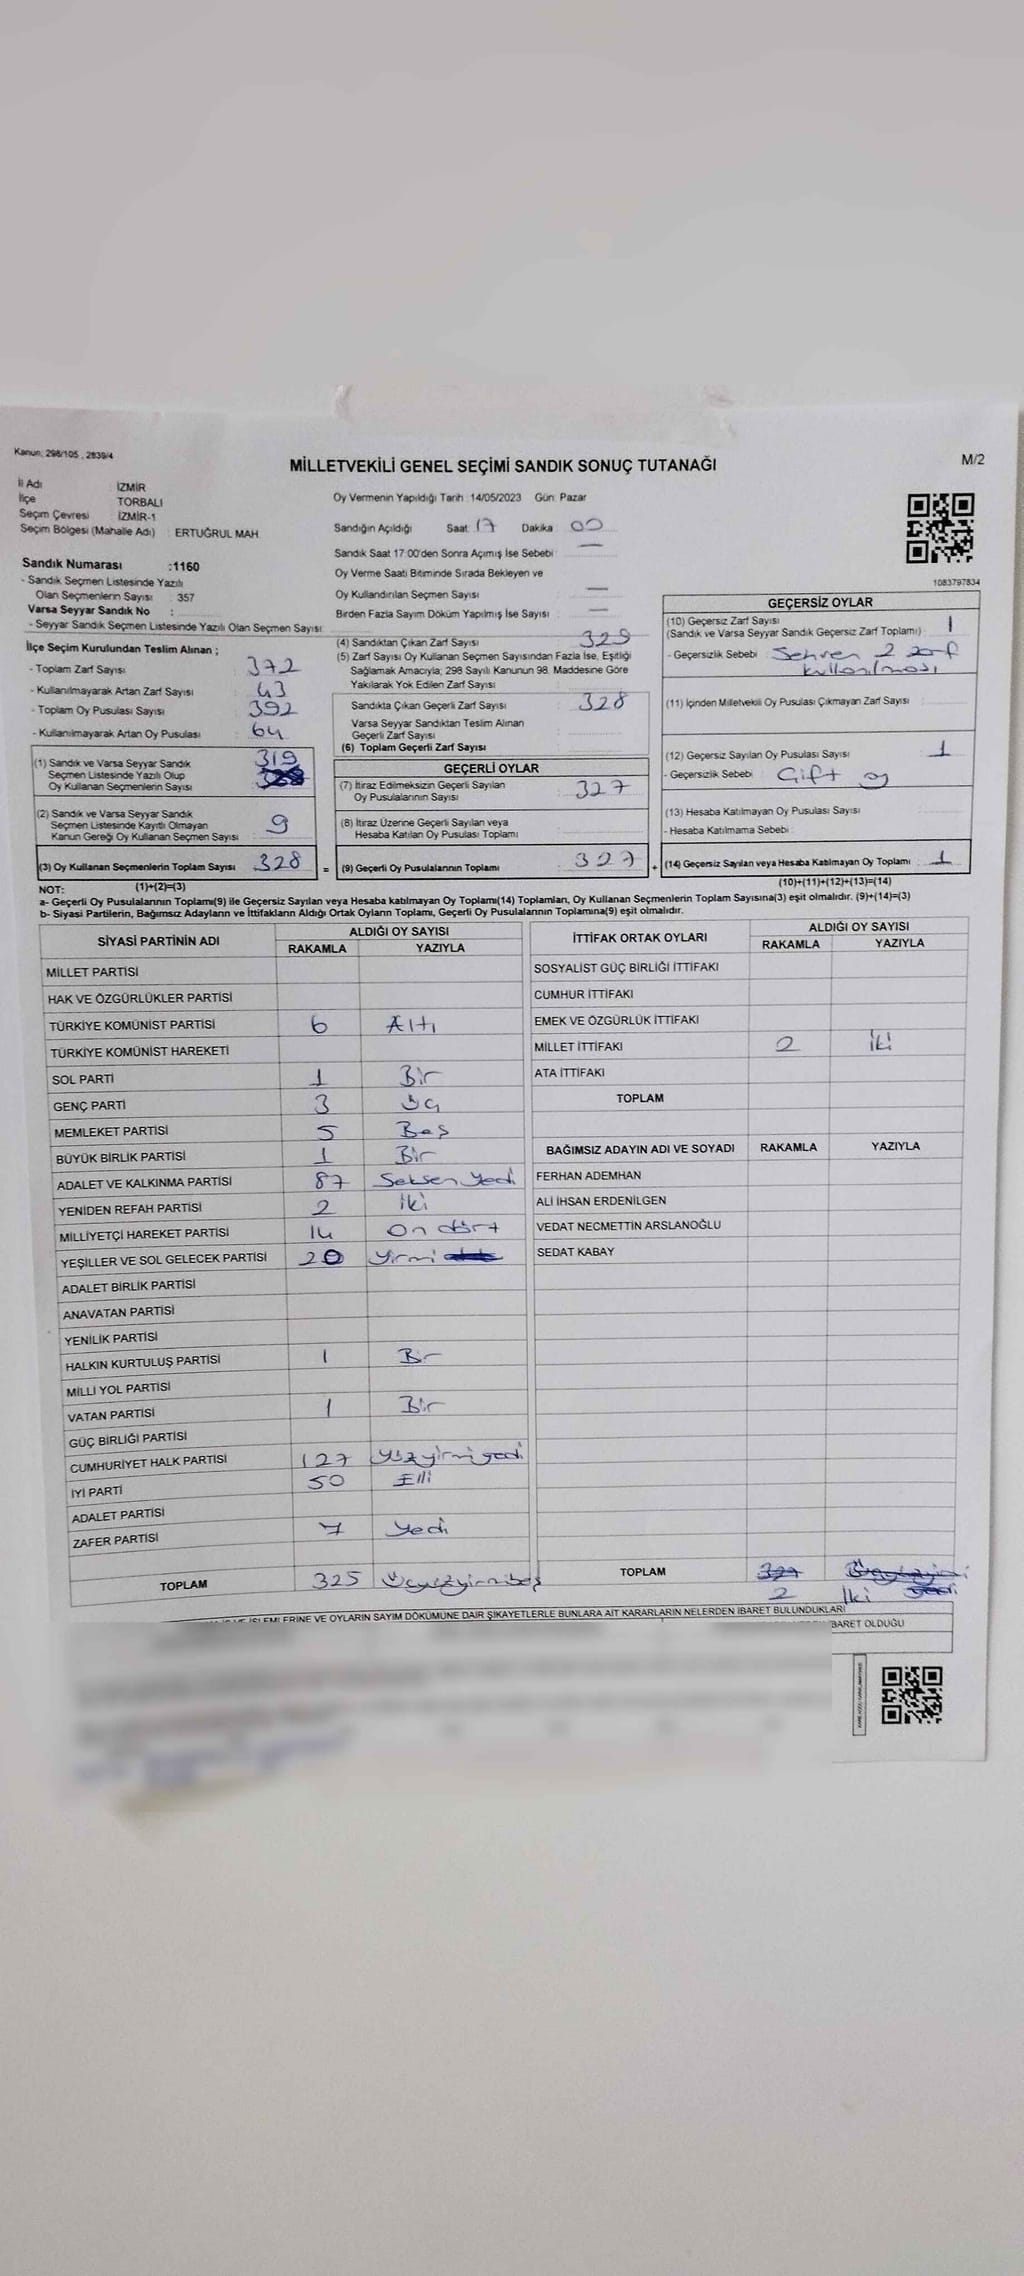 Kanun; 298/105 , 2839/4
MİLLETVEKİLİ GENEL SEÇİMİ SANDIK SONUÇ TUTANAĞI
M/2
İl Adı : İZMİR
İlçe : TORBALI
Seçim Çevresi : İZMİR-1
Seçim Bölgesi (Mahalle Adı) : ERTUĞRUL MAH.
Sandık Numarası :1160
- Sandık Seçmen Listesinde Yazılı
Olan Seçmenlerin Sayısı : 357
Varsa Seyyar Sandık No :
- Seyyar Sandık Seçmen Listesinde Yazılı Olan Seçmen Sayısı:
Oy Vermenin Yapıldığı Tarih :14/05/2023 Gün: Pazar
Sandığın Açıldığı Saat: 17 Dakika: 00
Sandık Saat 17:00'den Sonra Açımış İse Sebebi: —
Oy Verme Saati Bitiminde Sırada Bekleyen ve
Oy Kullandırılan Seçmen Sayısı : —
Birden Fazla Sayım Döküm Yapılmış İse Sayısı : —
1083797834
İlçe Seçim Kurulundan Teslim Alınan ;
- Toplam Zarf Sayısı : 372
- Kullanılmayarak Artan Zarf Sayısı : 43
- Toplam Oy Pusulası Sayısı : 392
- Kullanılmayarak Artan Oy Pusulası : 64
(1) Sandık ve Varsa Seyyar Sandık 319
Seçmen Listesinde Yazılı Olup
Oy Kullanan Seçmenlerin Sayısı :
(2) Sandık ve Varsa Seyyar Sandık
Seçmen Listesinde Kayıtlı Olmayan 9
Kanun Gereği Oy Kullanan Seçmen Sayısı :
(3) Oy Kullanan Seçmenlerin Toplam Sayısı : 328
(4) Sandıktan Çıkan Zarf Sayısı : 329
(5) Zarf Sayısı Oy Kullanan Seçmen Sayısından Fazla İse, Eşitliği
Sağlamak Amacıyla; 298 Sayılı Kanunun 98. Maddesine Göre
Yakılarak Yok Edilen Zarf Sayısı :
Sandıkta Çıkan Geçerli Zarf Sayısı : 328
Varsa Seyyar Sandıktan Teslim Alınan
Geçerli Zarf Sayısı :
(6) Toplam Geçerli Zarf Sayısı :
GEÇERLİ OYLAR
(7) İtiraz Edilmeksizin Geçerli Sayılan
Oy Pusulalarının Sayısı : 327
(8) İtiraz Üzerine Geçerli Sayılan veya
Hesaba Katılan Oy Pusulası Toplamı :
= (9) Geçerli Oy Pusulalarının Toplamı : 327 +
GEÇERSİZ OYLAR
(10) Geçersiz Zarf Sayısı 1
(Sandık ve Varsa Seyyar Sandık Geçersiz Zarf Toplamı) :
- Geçersizlik Sebebi : Sehven 2 zarf
kullanılması
(11) İçinden Milletvekili Oy Pusulası Çıkmayan Zarf Sayısı :
(12) Geçersiz Sayılan Oy Pusulası Sayısı : 1
- Geçersizlik Sebebi : Çift oy
(13) Hesaba Katılmayan Oy Pusulası Sayısı :
- Hesaba Katılmama Sebebi :
(14) Geçersiz Sayılan veya Hesaba Katılmayan Oy Toplamı : 1
NOT: (1)+(2)=(3)
(10)+(11)+(12)+(13)=(14)
a- Geçerli Oy Pusulalarının Toplamı(9) ile Geçersiz Sayılan veya Hesaba katılmayan Oy Toplamı(14) Toplamları, Oy Kullanan Seçmenlerin Toplam Sayısına(3) eşit olmalıdır. (9)+(14)=(3)
b- Siyasi Partilerin, Bağımsız Adayların ve İttifakların Aldığı Ortak Oyların Toplamı, Geçerli Oy Pusulalarının Toplamına(9) eşit olmalıdır.
SİYASİ PARTİNİN ADI ALDIĞI OY SAYISI
RAKAMLA YAZIYLA
MİLLET PARTİSİ
HAK VE ÖZGÜRLÜKLER PARTİSİ
TÜRKİYE KOMÜNİST PARTİSİ 6 Altı
TÜRKİYE KOMÜNİST HAREKETİ
SOL PARTİ 1 Bir
GENÇ PARTİ 3 Üç
MEMLEKET PARTİSİ 5 Beş
BÜYÜK BİRLİK PARTİSİ 1 Bir
ADALET VE KALKINMA PARTİSİ 87 Seksen yedi
YENİDEN REFAH PARTİSİ 2 İki
MİLLİYETÇİ HAREKET PARTİSİ 14 On dört
YEŞİLLER VE SOL GELECEK PARTİSİ 20 Yirmi
ADALET BİRLİK PARTİSİ
ANAVATAN PARTİSİ
YENİLİK PARTİSİ
HALKIN KURTULUŞ PARTİSİ 1 Bir
MİLLİ YOL PARTİSİ
VATAN PARTİSİ 1 Bir
GÜÇ BİRLİĞİ PARTİSİ
CUMHURİYET HALK PARTİSİ 127 yüzyirmiyedi
İYİ PARTİ 50 Elli
ADALET PARTİSİ
ZAFER PARTİSİ 7 Yedi
TOPLAM 325 Üçyüzyirmibeş
İTTİFAK ORTAK OYLARI ALDIĞI OY SAYISI
RAKAMLA YAZIYLA
SOSYALİST GÜÇ BİRLİĞİ İTTİFAKI
CUMHUR İTTİFAKI
EMEK VE ÖZGÜRLÜK İTTİFAKI
MİLLET İTTİFAKI 2 İki
ATA İTTİFAKI
TOPLAM
BAĞIMSIZ ADAYIN ADI VE SOYADI RAKAMLA YAZIYLA
FERHAN ADEMHAN
ALİ İHSAN ERDENİLGEN
VEDAT NECMETTİN ARSLANOĞLU
SEDAT KABAY
TOPLAM 327
2 İki
İŞLEMLERİNE VE OYLARIN SAYIM DÖKÜMÜNE DAİR ŞİKAYETLERLE BUNLARA AİT KARARLARIN NELERDEN İBARET BULUNDUKLARI
İBARET OLDUĞU